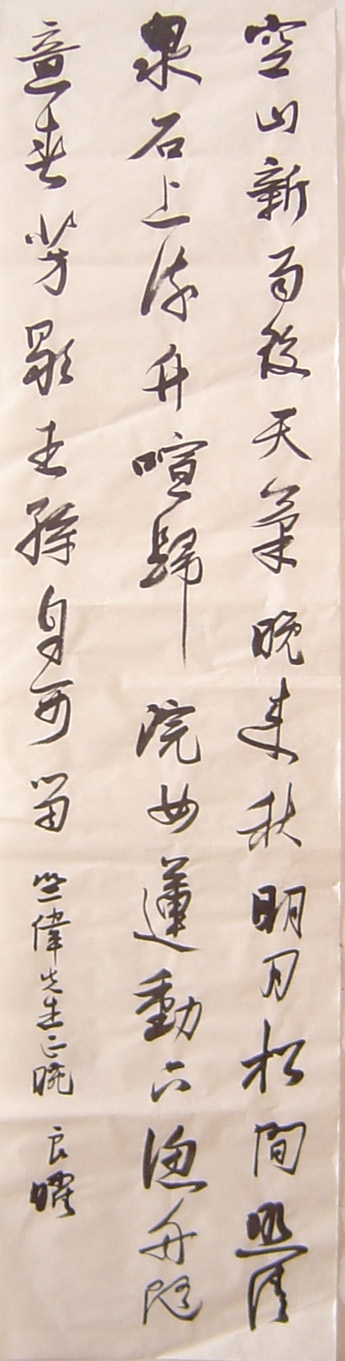 空山新雨後天氣晚來秋明月松間照清
泉石上流竹喧歸浣女蓮動下漁舟隨
意春芳歇王孫自可留 偉先生正腕 良曜